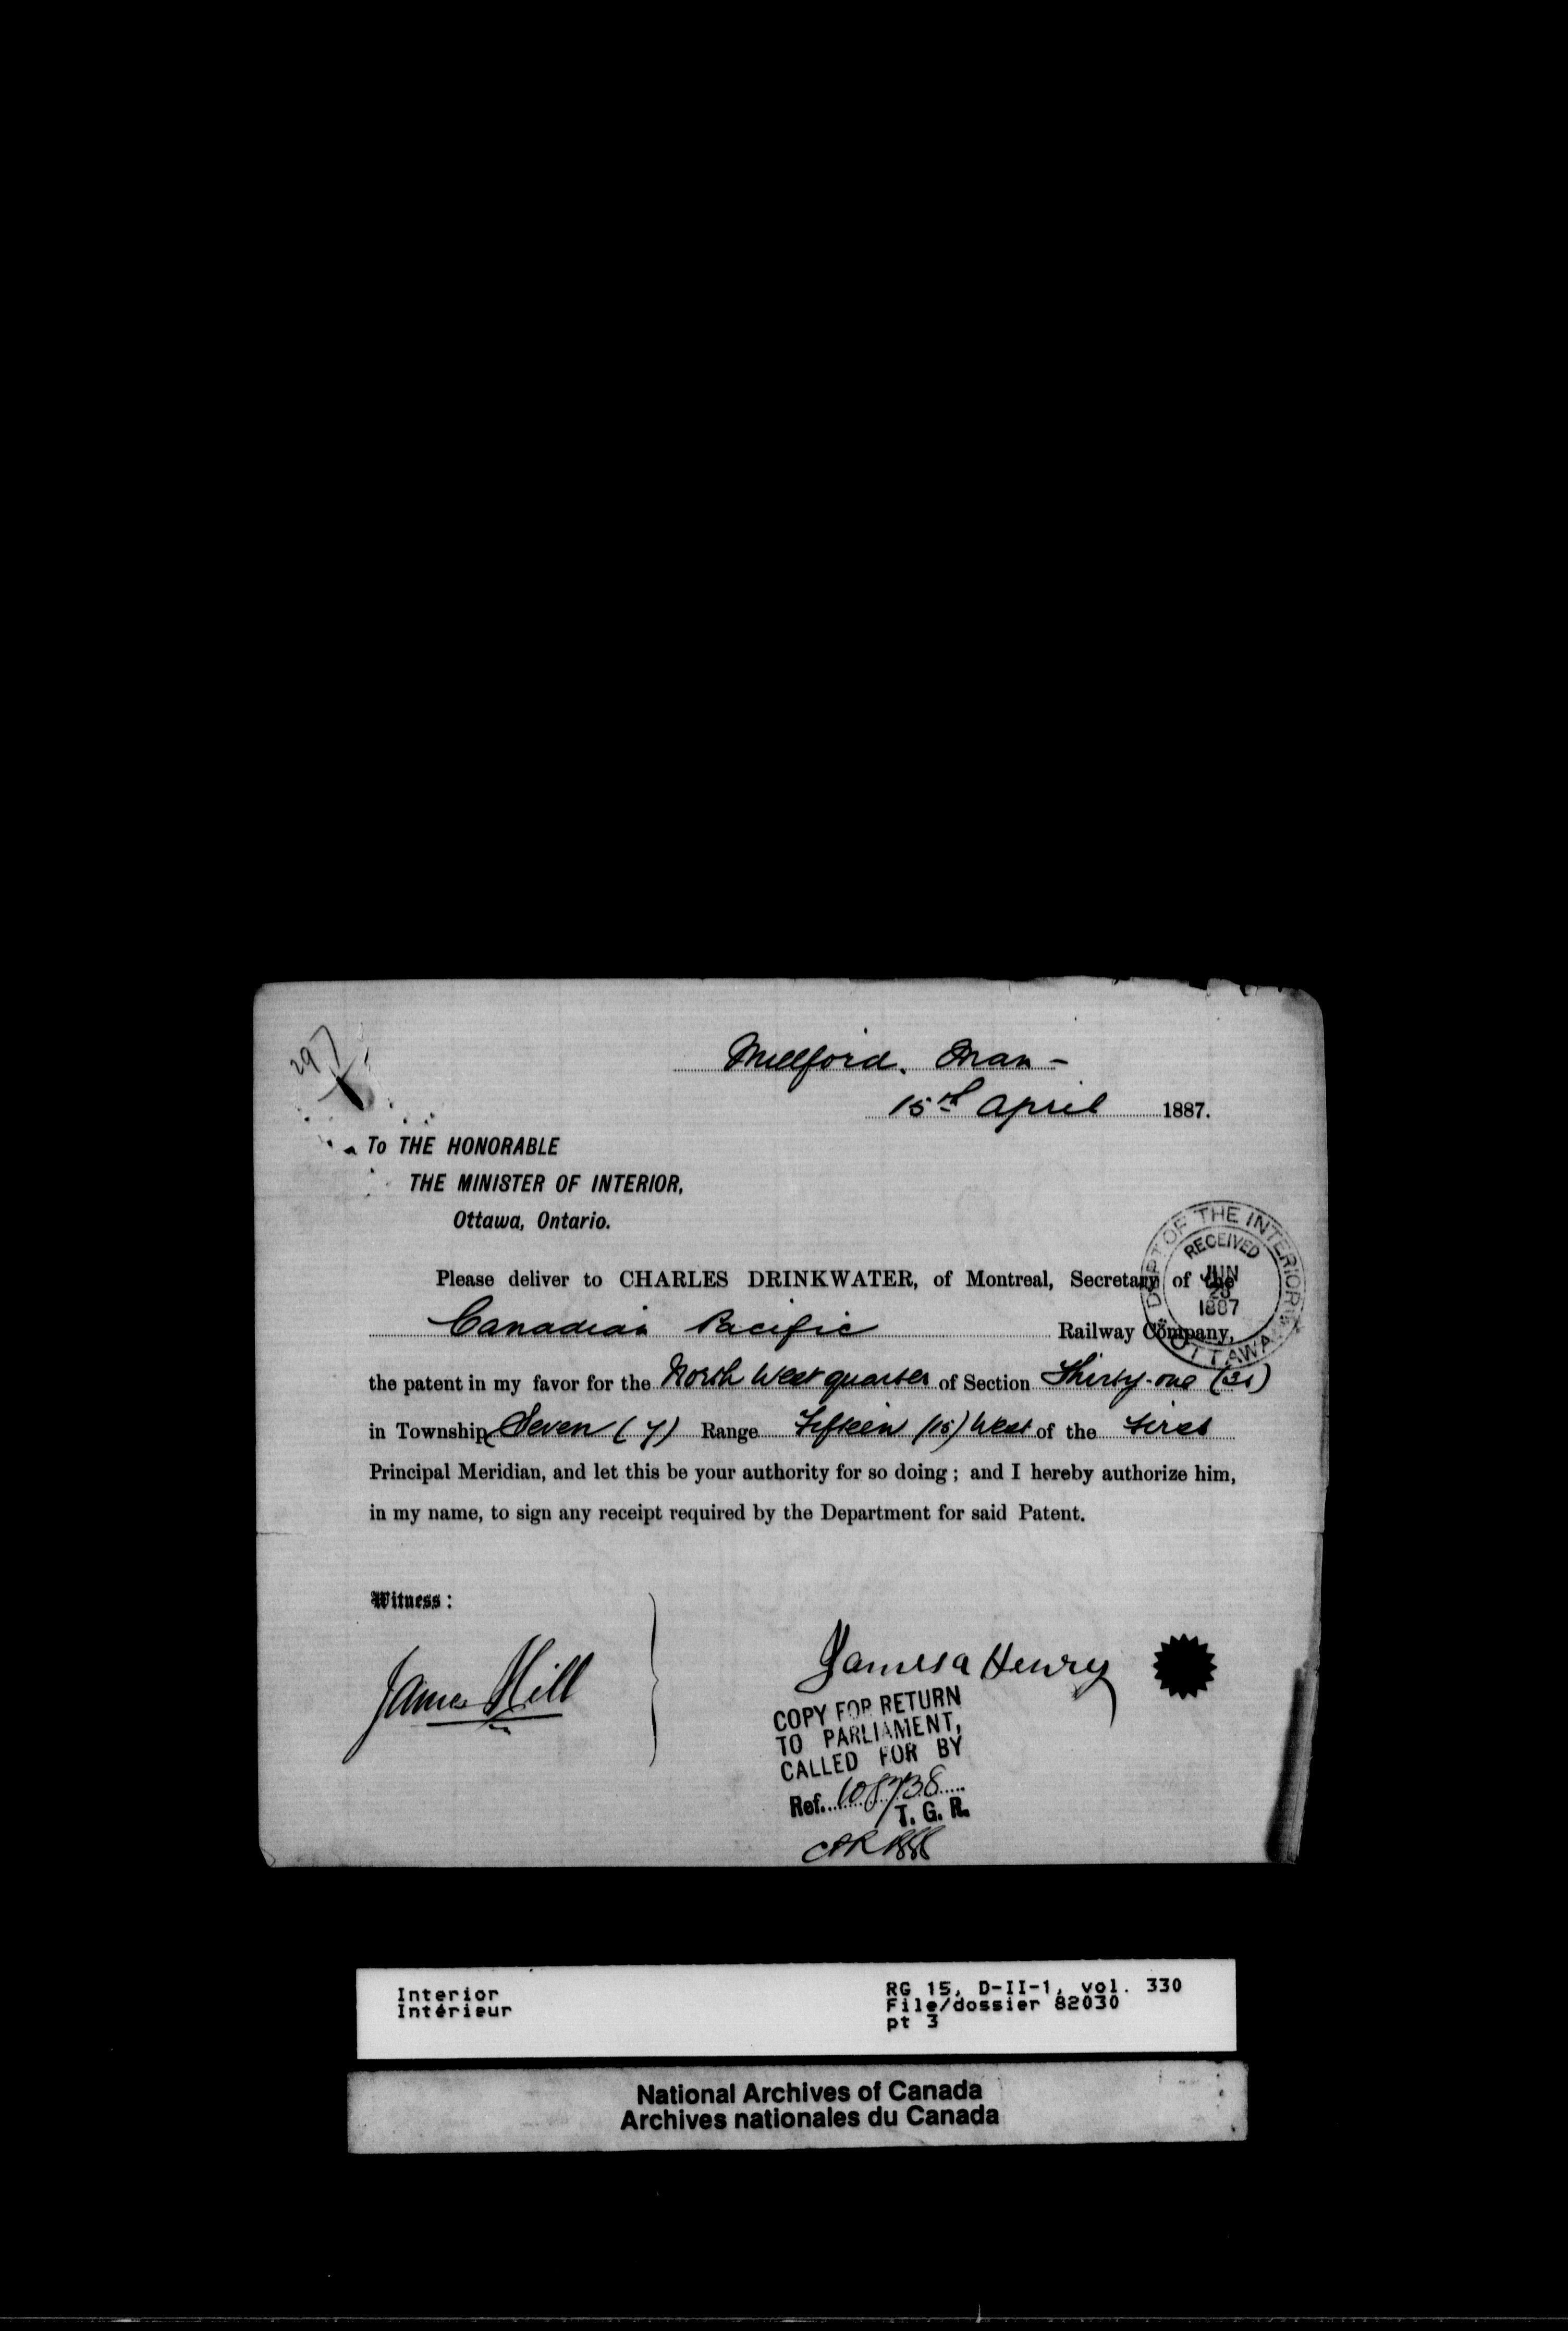 297
Millford. Man -
15th April 1887.
To THE HONORABLE
THE MINISTER OF INTERIOR,
Ottawa, Ontario.
DEPT OF THE INTERIOR
RECEIVED
JUN
23
1887
OTTAWA
Please deliver to CHARLES DRINKWATER, of Montreal, Secretary of the
Canadian Pacific Railway Company,
the patent in my favor for the North West quarter of Section Thirty-one (31)
in Township Seven (7) Range Fifteen (15) West of the First
Principal Meridian, and let this be your authority for so doing ; and I hereby authorize him,
in my name, to sign any receipt required by the Department for said Patent.
Witness :
James Hill
James a Henry
COPY FOR RETURN
TO PARLIAMENT,
CALLED FOR BY
Ref. 108738
T. G. R.
Interior
Intérieur
RG 15, D-II-1, vol. 330
File/dossier 82030
pt 3
National Archives of Canada
Archives nationales du Canada